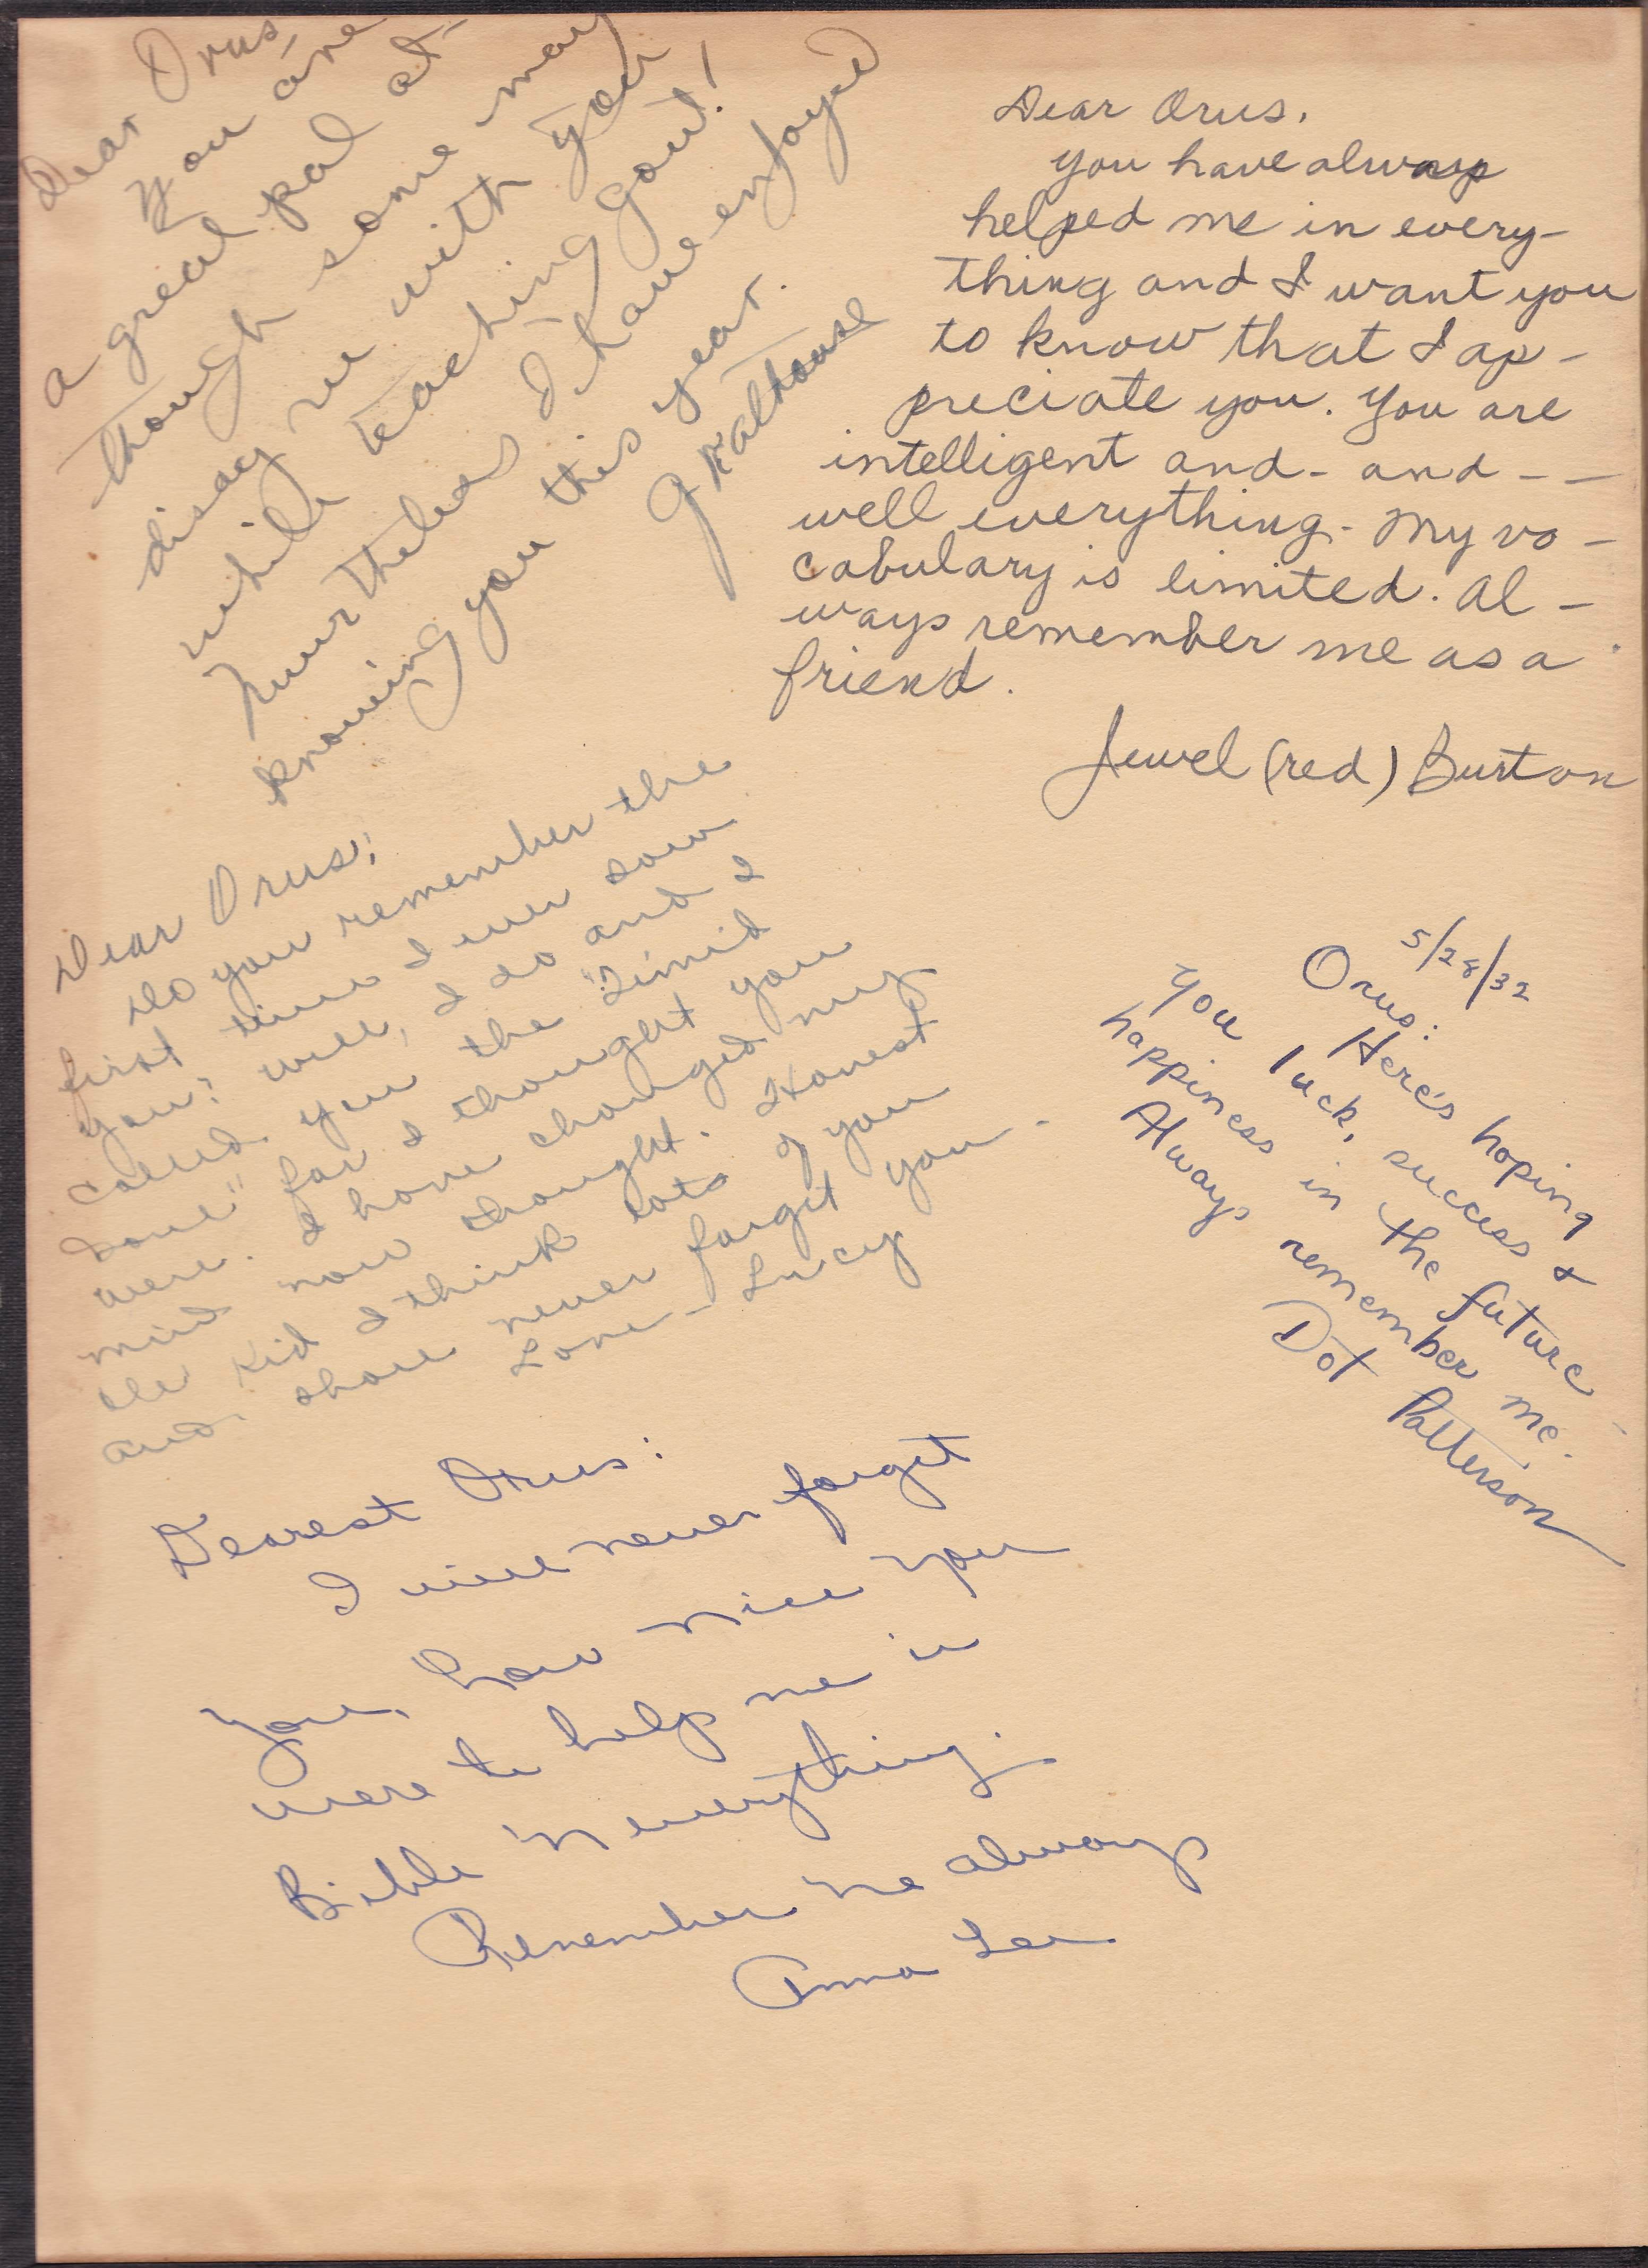 Dear Orus,
You are
a great pal al-
though some may
disagree with you
while teaching gout!
Nevertheless I have enjoyed
knowing you this year.
G Kalhouse
Dear Orus.
you have always
helped me in every-
thing and I want you
to know that I ap-
preciate you. you are
intelligent and- and --
well everything- My vo-
cabulary is limited. Al-
ways remember me as a
friend.
Jewel (red) Burton
Dear Orus;
Do you remember the
first time I ever saw
you? well, I do and I
called you the "Timid
Soul" for I thought you
were. I have changed my
mind now though. Honest
kid I think lots of you
and shall never forget you.
Love - Lucy
5/28/32
Orus:
Here's hoping
you luck, success &
happiness in the future
Always remember me.
Dot Patterson
Dearest Orus:
I will never forget
you, how nice you
were to help me in
Bible in everything.
Remember me always
Anna Lee